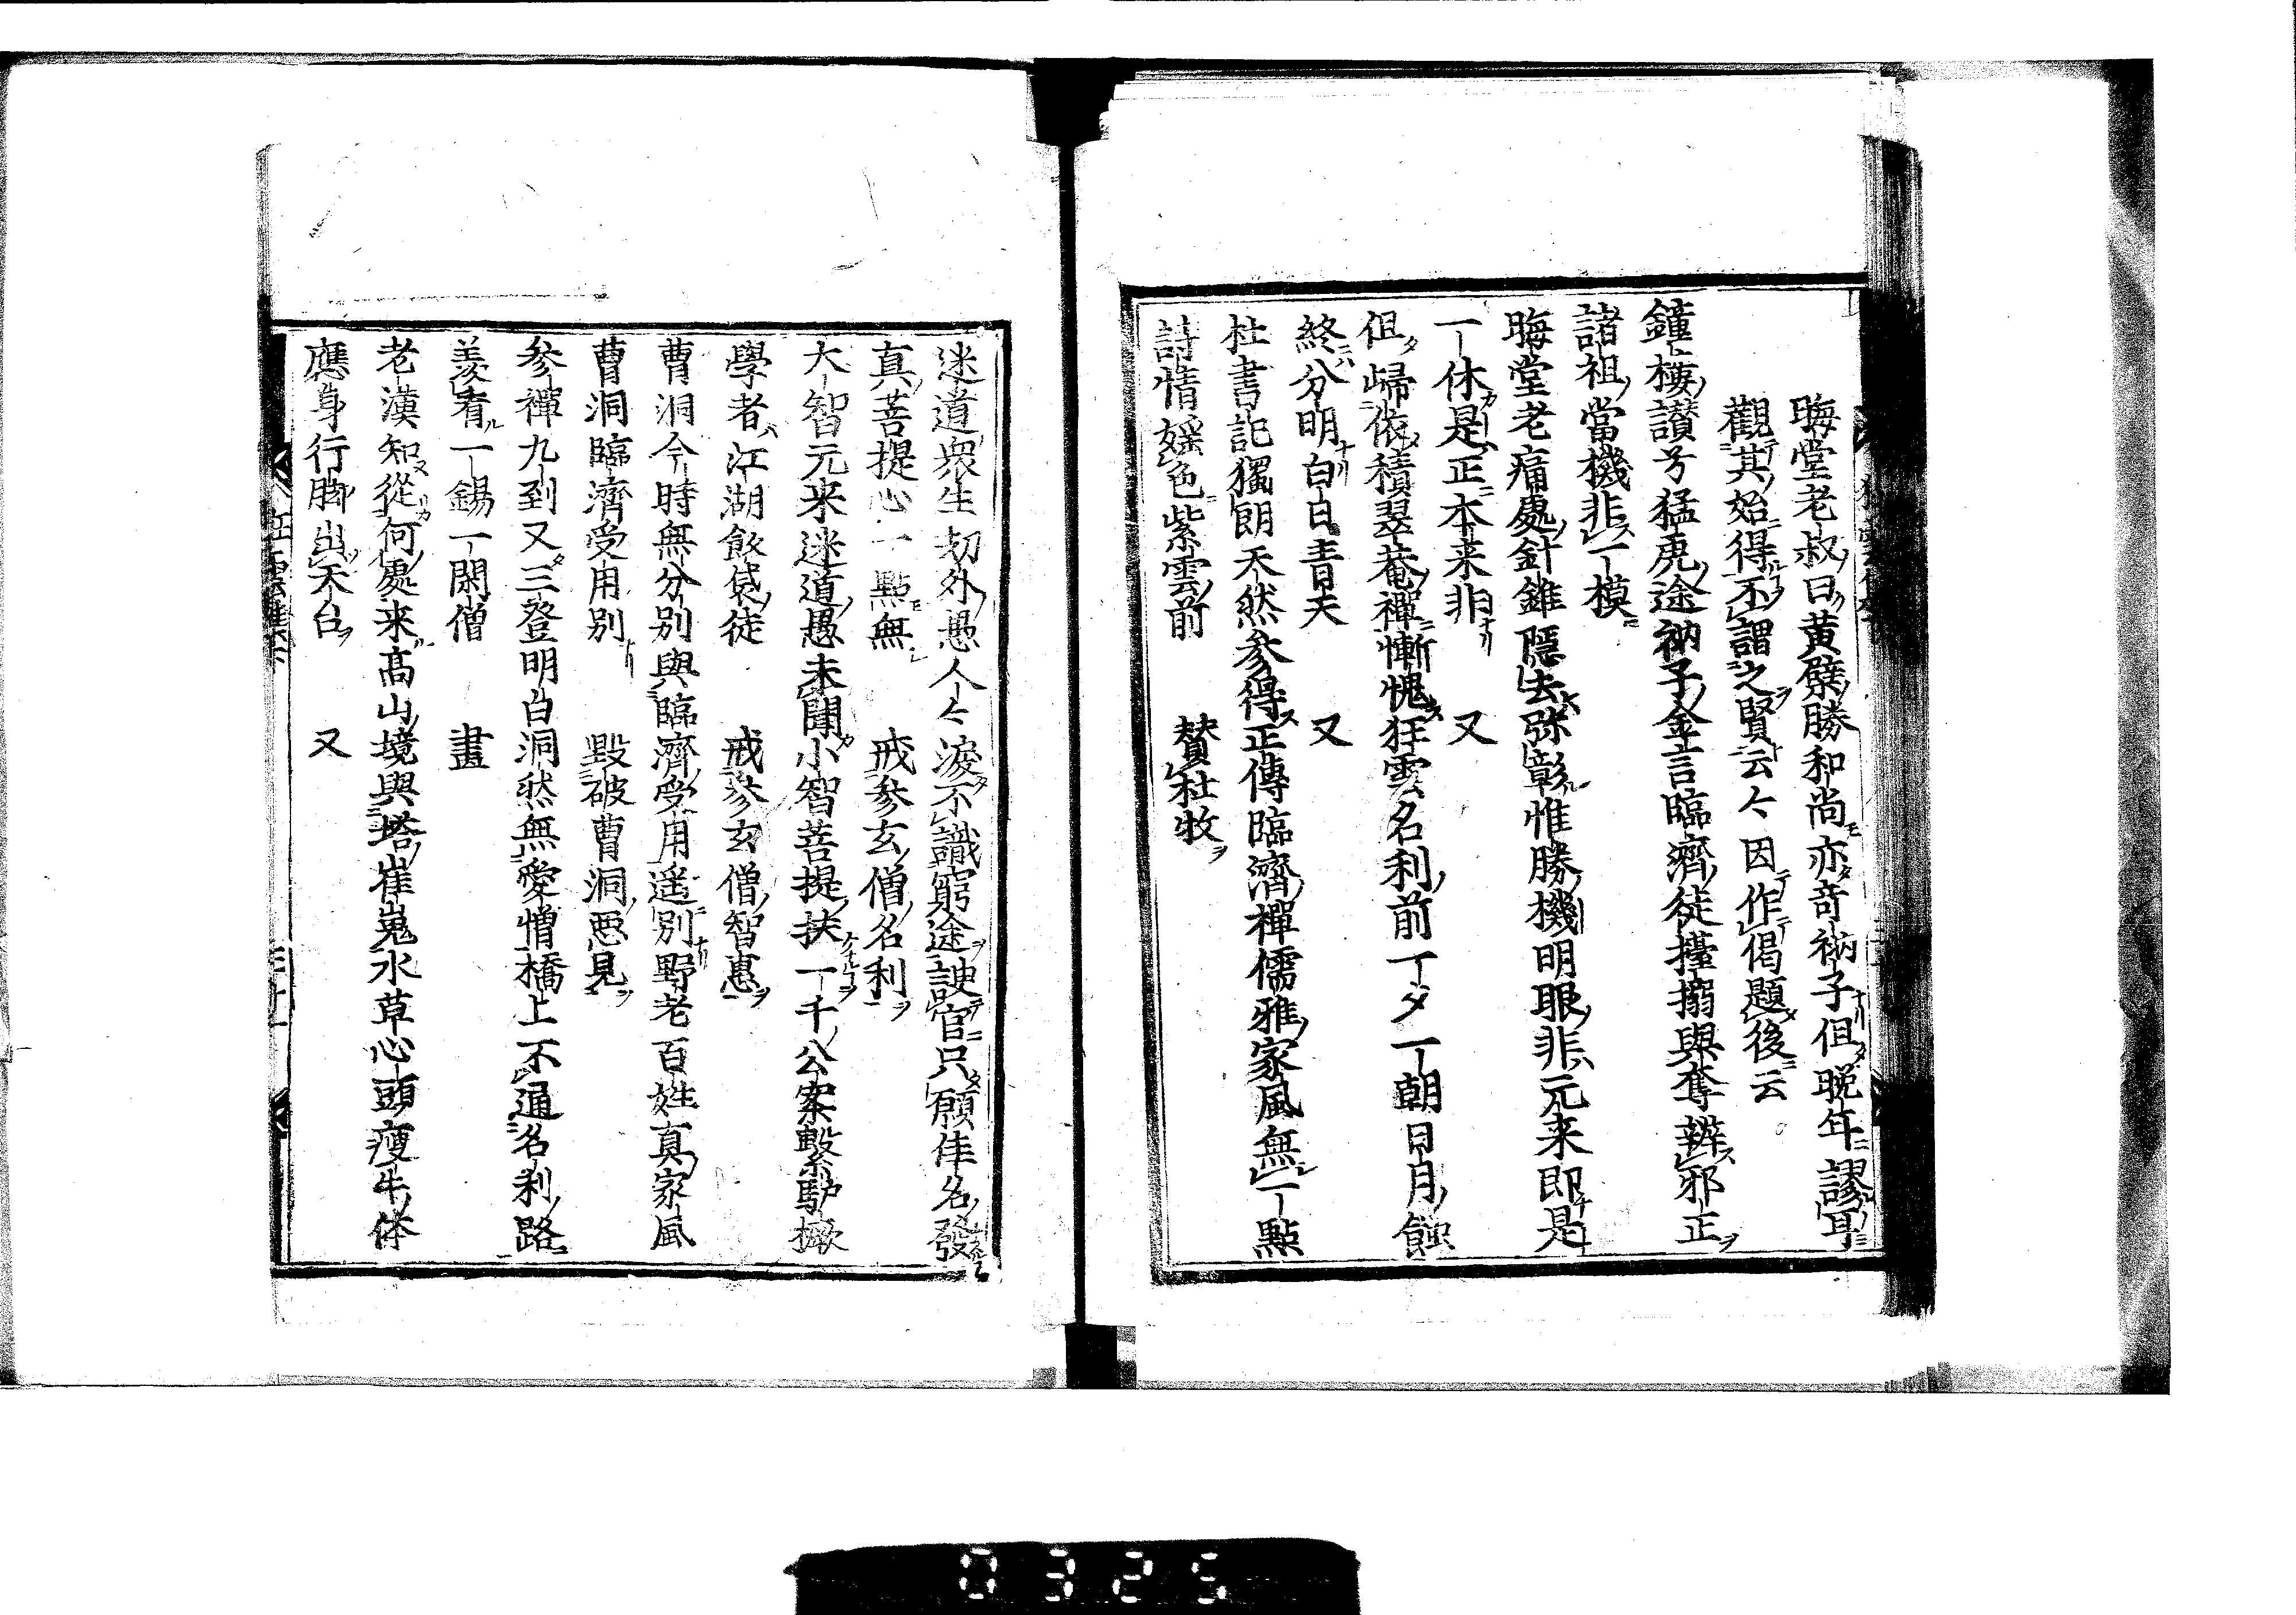 晦堂老叔曰黄檗勝和尚亦奇衲子但晚年謬耳
觀其始得不謂之賢云々因作偈題後云
鐘樓讃兮猛虎途衲子金言臨濟徒擡搦與奪辨邪正
諸祖當機非一模
晦堂老痛處針錐隱去弥彰惟勝機明眼非元来即是
一休是正本来非　又
但歸依積翠菴禪慚愧狂雲名利前一夕一朝日月蝕
終分明白白日青天　又
杜書記獨朗天然参得正傳臨濟禪儒雅家風無一點
詩情婬色紫雲前　賛杜牧
迷道衆生劫外愚人々凌不識窮途諛官只願佳名發
真菩提心一點無　戒参玄僧名利
大智元来迷道愚未聞小智菩提扶一千公案繫驢橛
學者江湖飯袋徒　戒参玄僧智惠
曹洞今時無分別與臨濟受用遥別野老百姓真家風
曹洞臨濟受用別　毀破曹洞悪見
参禪九到又三登明白洞然無愛憎橋上不通名利路
羨看一錫一閑僧　畫
老漢知從何處来髙山境與塔崔嵬水草心頭瘦牛体
應身行脚出天台　又
狂雲集下
0325